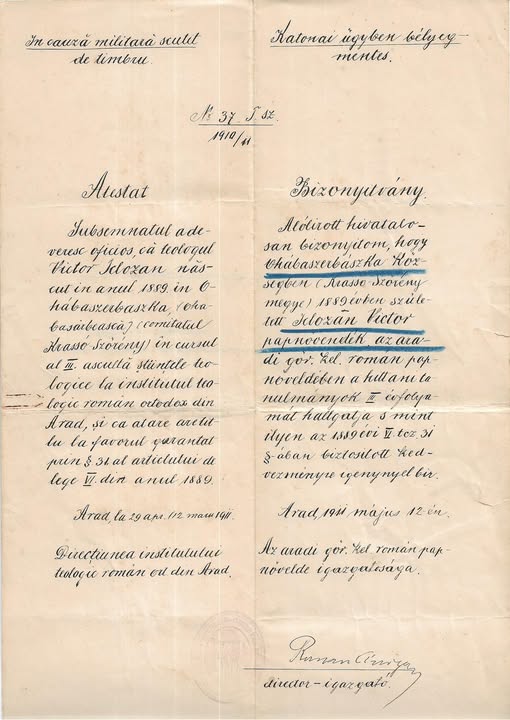 In cauză militară scutit
de timbru.
Katonai ügyben bélyeg-
mentes.
№ 37. T. sz.
1910/11
Atestat
Subsemnatul ade-
veresc oficios, că teologul
Victor Selozan năs-
cut in anul 1889 in O-
hábaszerbászka, (oha-
basaibeasca) (comitatul
Krassó Szörény) in cursul
al III. ascultă științele teo-
logice la institutul teo-
logic român ortodox din
Arad, și ca atare are tit-
lu la favorul garantat
prin § 31 al articlului de
lege VI. din anul 1889.
Arad, la 29 apr./12 maiu 1911.
Direcțiunea institutului
teologic român ort din Arad.
Bizonyítvány.
Alólirott hivatalo-
san bizonyitom, hogy
Ohábaszerbászka Köz-
ségben (Krassó Szörény
megye) 1889 évben szüle-
tett Selozán Victor
papnövendék, az ara-
di gör. kel. román pap-
növeldében a hittani ta-
nulmányok III évfolya-
mát hallgatja s mint
ilyen az 1889 évi VI. tcz. 31
§-ában biztositott ked-
vezményre igénynyel bir.
Arad, 1911 május 12-én.
Az aradi gör. kel. román pap-
növelde igazgatósága.
director – igazgató.